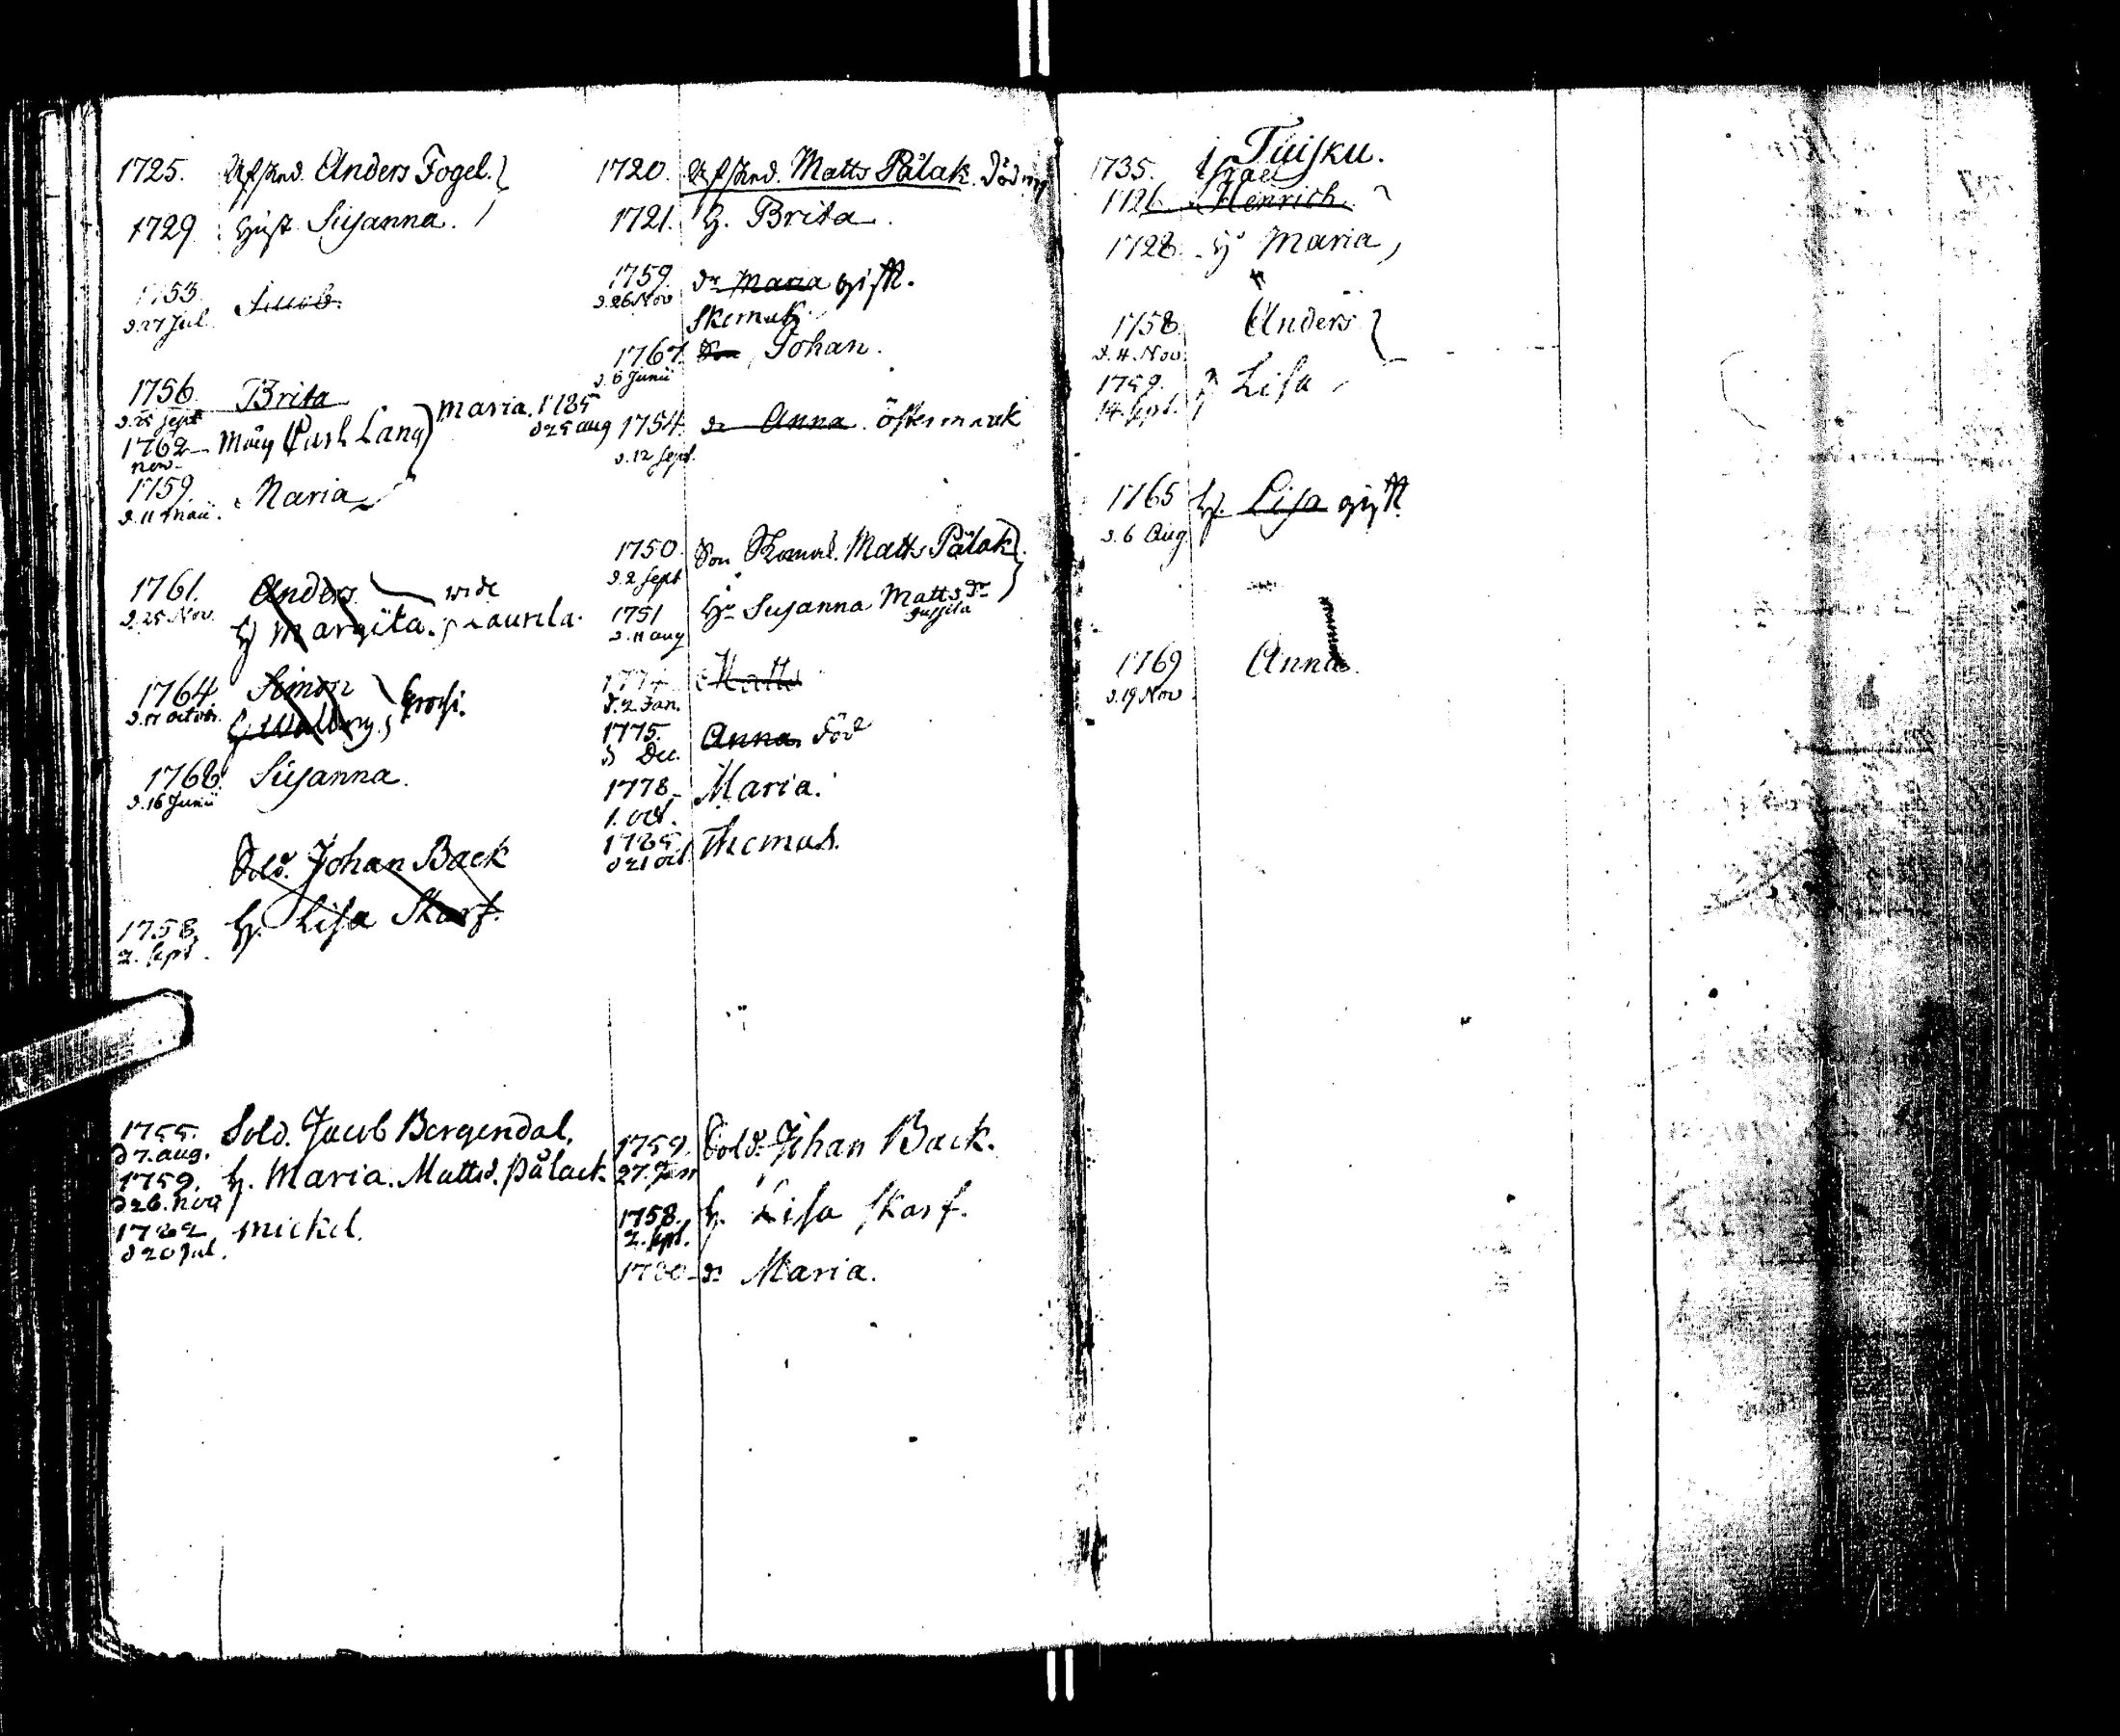 1725. Afsked. Anders Fogel.
1729 Hust. Susanna.
1753. Jacob.
d. 27 Jul.
1756. Brita
d. 25 Sept
1762 Måg Carl Lang Maria. 1785
nov. d 25 aug
1759. Maria
d. 11 Maii.
1761. Anders wide
d. 25 Nov. H Margita. Laurila.
1764 Simon Krochi.
d. 17 octobr. H Walborg.
1768 Susanna.
d. 16 Junii
Sold. Johan Back
1758. H. Lisa Skarf.
2. Sept.
1755. Sold. Jacob Bergendal.
d 7. aug.
1759. H. Maria. Mattsd. Pålack.
d 26. nov
1782 Mickel.
d 20 Jul.
1720. Afsked. Matts Pålak. Död
1721. H. Brita.
1759. dr Maria gift.
d. 26 Nov
1767. Son Johan.
d. 6 Junii
1754. dr Anna östermark
d. 12 Sept.
1750. Son Matts Pålak
d. 2 Sept
1751 Hu Susanna Mattsdr
d. 11 aug
Matts
d. 2 Jan.
1775. Anna. död
d Dec.
1778 Maria.
1. oct.
1785 Thomas.
d 21 oct.
1759. Sold. Johan Back.
27. Jan
1758. H. Lisa Skarf.
2. Sept.
1780 dr Maria.
Tuisku.
1735. Israel
1726. Henrich.
1728. Hu Maria
1758. Anders
d. 4. Nov.
1759. H Lisa
14. Sept.
1765 H. Lisa gift
d. 6 Aug
1769 Anna.
d. 19 Nov